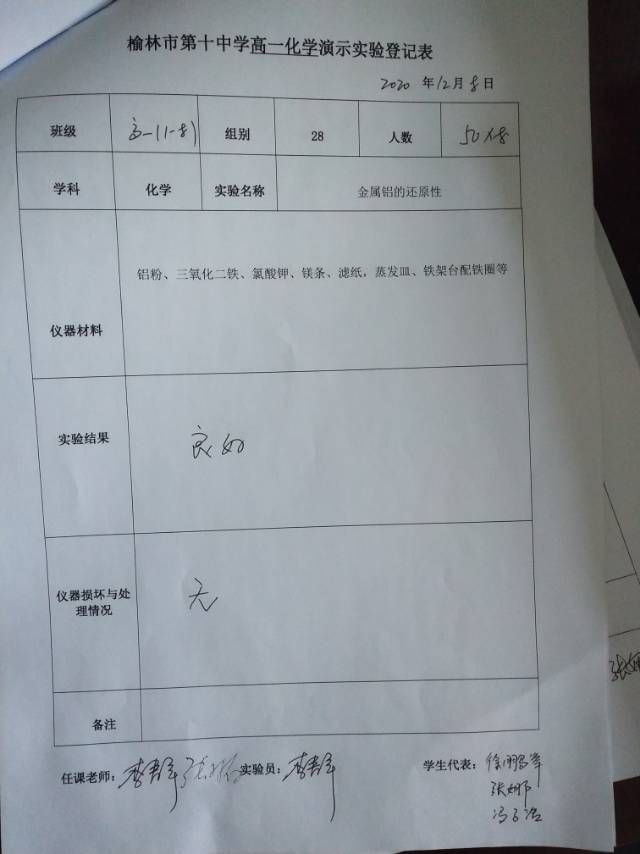 榆林市第十中学高一化学演示实验登记表
2020 年 12 月 8 日
班级 高一(1-8) 组别 28 人数 50×8
学科 化学 实验名称 金属铝的还原性
仪器材料 铝粉、三氧化二铁、氯酸钾、镁条、滤纸，蒸发皿、铁架台配铁圈等
实验结果 良好
仪器损坏与处
理情况 无
备注
任课老师： 实验员： 学生代表：
张娜